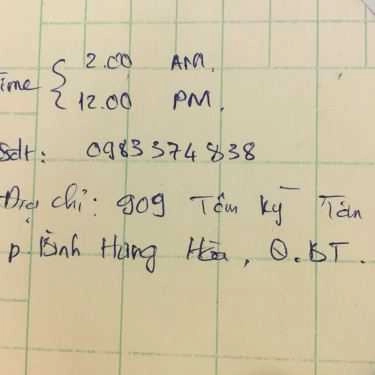 Time { 2.00 AM.
12.00 PM.
Sdt: 0983374838
Địa chỉ: 909 Tân Kỳ Tân
p Bình Hưng Hòa, Q.BT.